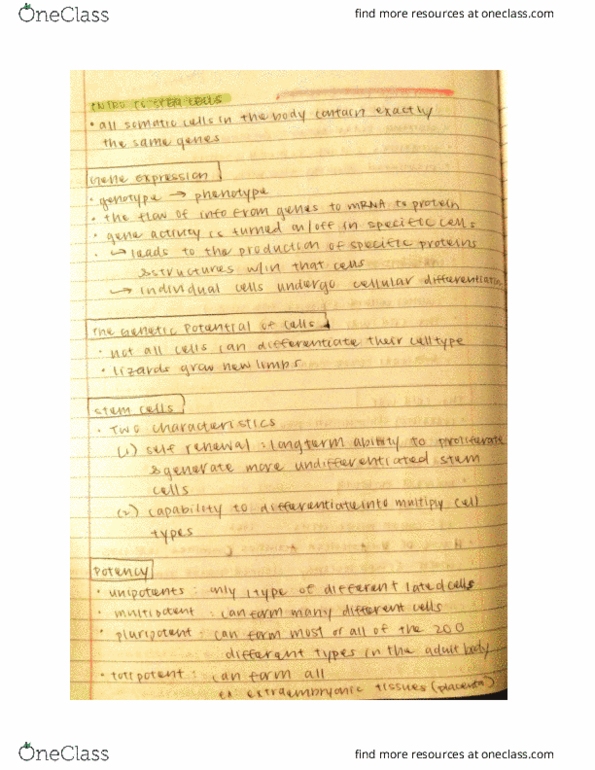 OneClass
find more resources at oneclass.com
INTRO TO STEM CELLS
• all somatic cells in the body contain exactly
the same genes
Gene expression
• genotype → phenotype
• the flow of info from genes to mRNA to protein
• gene activity is turned on/off in specific cells
• ↳ leads to the production of specific proteins
& structures w/in that cells
↳ individual cells undergo cellular differentiation
The Genetic Potential of Cells
• not all cells can differentiate their cell type
• lizards grow new limbs
Stem cells
• Two characteristics
(1) self renewal : longterm ability to proliferate
& generate more undifferentiated stem
cells
(2) capability to differentiate into multiply cell
types
Potency
• unipotents : only 1 type of different iated cells
• multipotent : can form many different cells
• pluripotent : can form most or all of the 200
different types in the adult body
• totipotent : can form all
ex: extraembryonic tissues (placenta)
OneClass
find more resources at oneclass.com